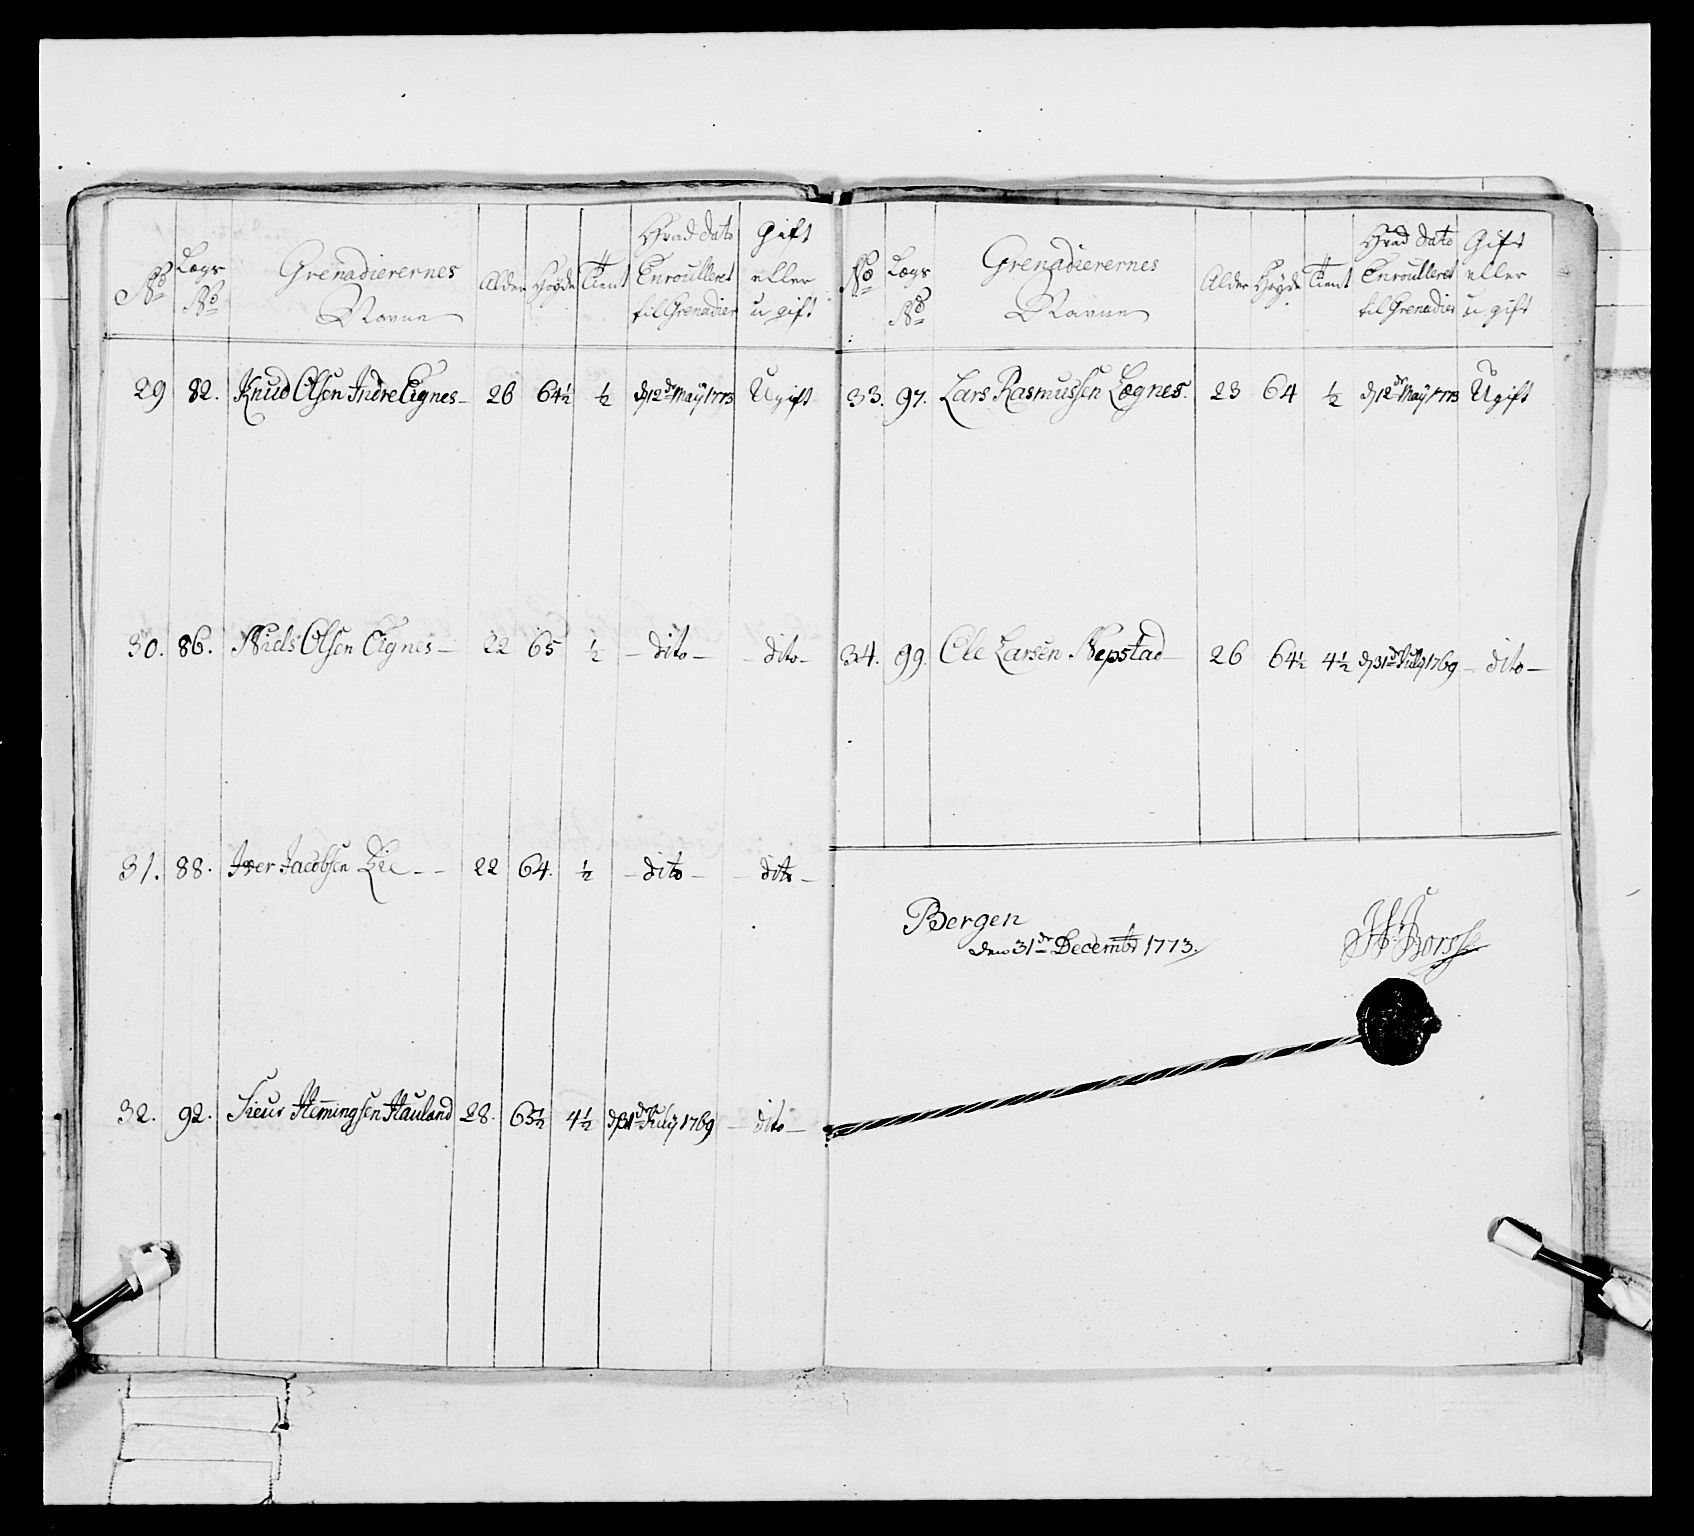 No Lægs No Grenadierernes Navne Alder Høyde Tient Hvad Dato Enroulleret til Grenadier Gift eller ugift
29 82. Knud Olsen Indre Eignes 26 64½ ½ d 12de Maÿ 1773 Ugift
30. 86. Niels Olsen Eignes 22 65 ½ dito dito
31. 88. Iver Jacobsen Lie 22 64. ½ dito dito
32. 92. Sieur Hemingsen Hauland 28. 65½ 4½ d 31de Julÿ 1769 dito
No Lægs No Grenadierernes Navne Alder Høyde Tient Hvad Dato Enroulleret til Grenadier Gift eller ugift
33. 97. Lars Rasmussen Lægnes. 23 64 ½ d 12de Maÿ 1773 Ugift
34. 99. Ole Larsen Nepstad 26 64½ 4½ d 31de Julÿ 1769 dito
Bergen
den 31de Decembr 1773.